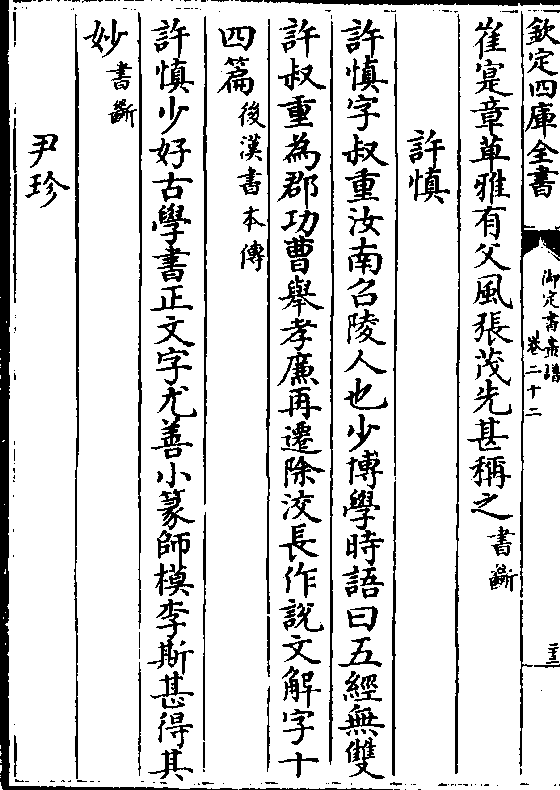 欽定四庫全書
御定書畫譜
卷二十二
二十三
崔寔章草雅有父風張茂先甚稱之書斷
許慎
許慎字叔重汝南召陵人也少博學時語曰五經無雙
許叔重為郡功曹舉孝廉再遷除洨長作說文解字十
四篇後漢書本傳
許慎少好古學書正文字尤善小篆師模李斯甚得其
妙書斷
尹珍